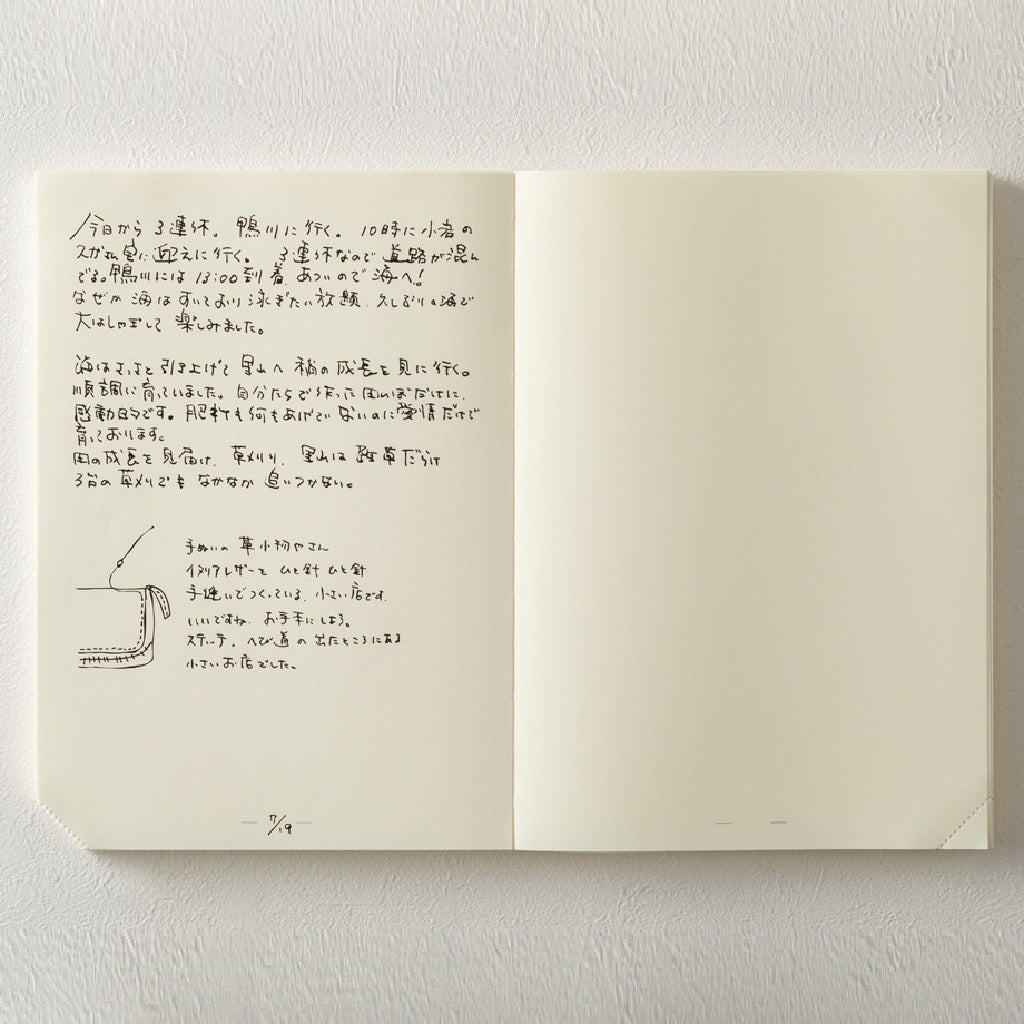 今日から3連休。鴨川に行く。10時に小岩の
スガ宅に迎えに行く。 3連休なので道路が混ん
でる。鴨川には13:00到着 あついので海へ!
なぜか海はすいており泳ぎたい放題、久しぶりの海で
大はしゃぎして楽しみました。
海はさっさと引き上げて里山へ 稲の成長を見に行く。
順調に育っていました。自分たちで作った田んぼだけに、
感動的です。肥料も何もあげていないのに愛情だけで
育っております。
田の成長を見届け、草刈り、里山は雑草だらけ
3台の草刈りでもなかなか追いつかない。
手ぬいの革小物やさん
イタリアレザーを ひと針ひと針
手縫いでつくっている、小さい店です。
いいですね、お手本にしよう。
ステッチ、へび道の出たところにある
小さいお店でした。
7/19